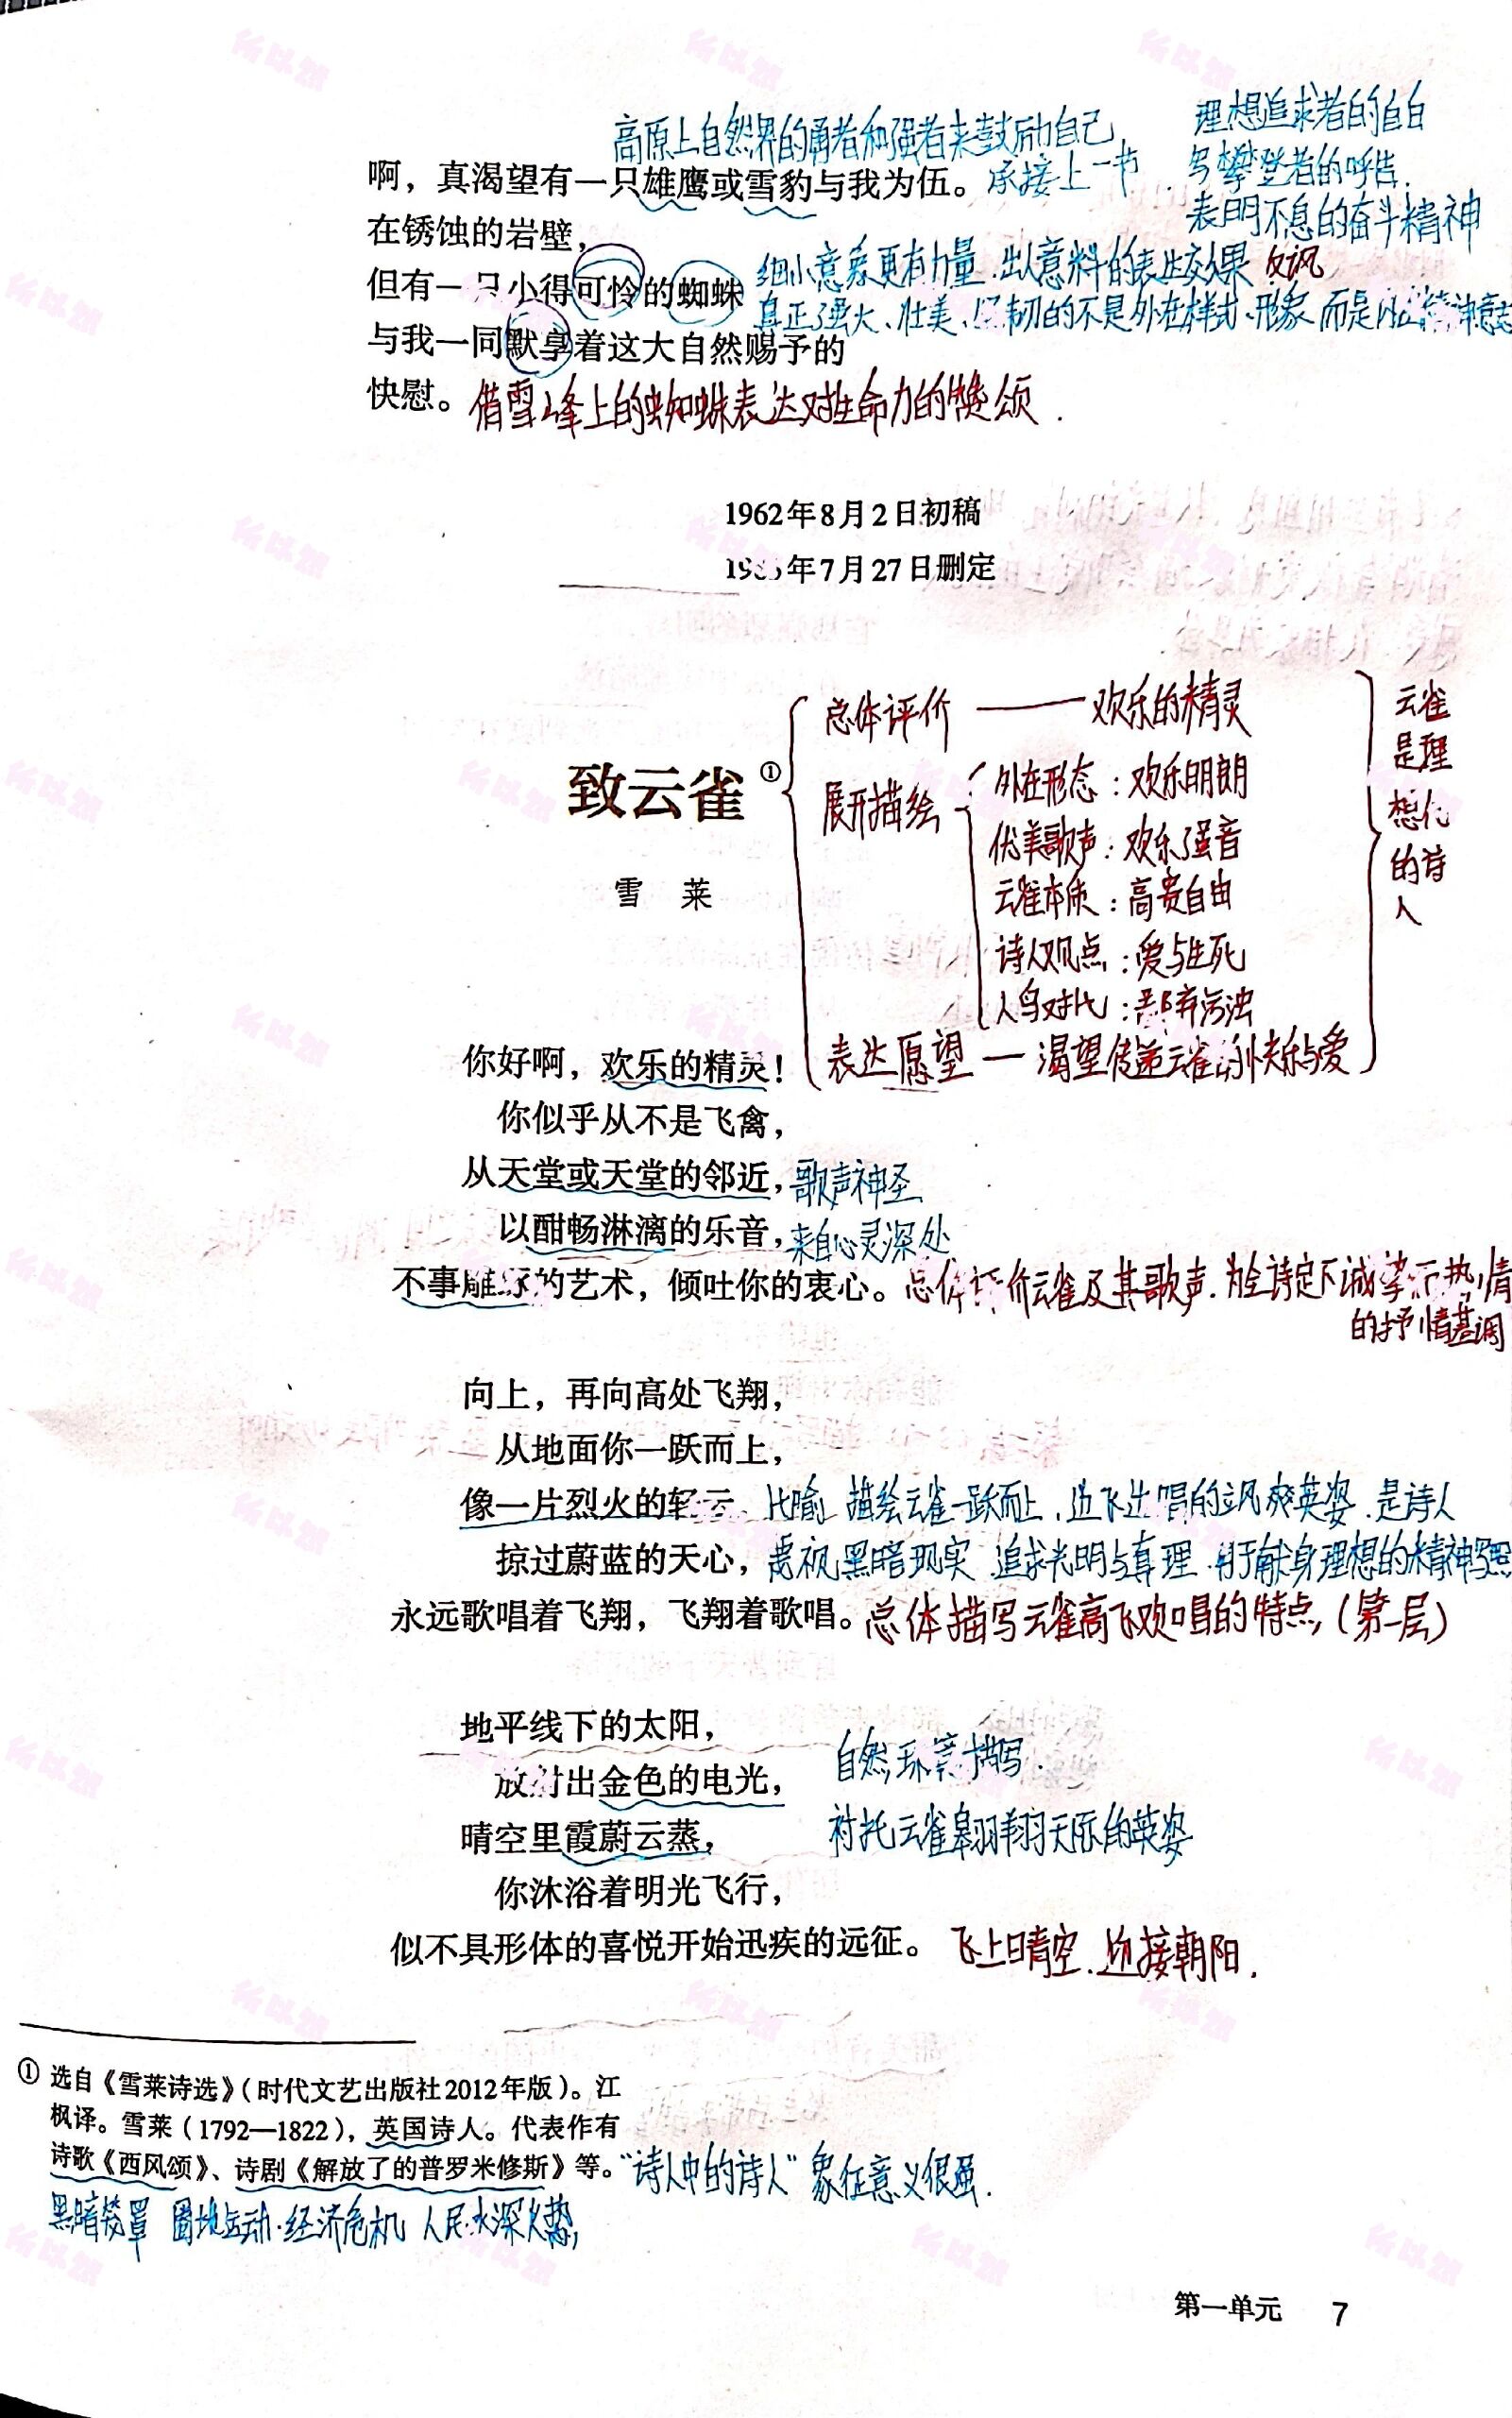 高原上自然界的勇者和强者来鼓励自己
理想追求者的自白
啊，真渴望有一只雄鹰或雪豹与我为伍。承接上一节
与攀登者的呼告.
在锈蚀的岩壁，
表明不息的奋斗精神
但有一只小得可怜的蜘蛛
细小意象更有力量.出人意料的表达效果 反讽
真正强大、壮美、坚韧的不是外在样式、形象.而是内在精神意志
与我一同默享着这大自然赐予的
快慰。借雪峰上的蜘蛛表达对生命力的赞颂.
1962年8月2日初稿
年7月27日删定
总体评价——欢乐的精灵
致云雀①
展开描绘
外在形态：欢乐明朗
优美歌声：欢乐强音
雪 莱
云雀本质：高贵自由
诗人观点：爱与生死
人鸟对比：鄙弃污浊
表达愿望—渴望传递云雀的快乐与爱
云雀
是理
想化
的诗
人
你好啊，欢乐的精灵！
你似乎从不是飞禽，
从天堂或天堂的邻近，歌声神圣
以酣畅淋漓的乐音，来自心灵深处
不事雕琢的艺术，倾吐你的衷心。总体评价云雀及其歌声.为全诗定下诚挚而热情
的抒情基调
向上，再向高处飞翔，
从地面你一跃而上，
像一片烈火的轻云 比喻 描绘云雀一跃而上、边飞边唱的飒爽英姿.是诗人
掠过蔚蓝的天心，蔑视黑暗现实 追求光明与真理 勇于献身理想的精神写照
永远歌唱着飞翔，飞翔着歌唱。总体描写云雀高飞欢唱的特点（第一层）
地平线下的太阳，
自然环境描写.
放射出金色的电光，
晴空里霞蔚云蒸，
衬托云雀翱翔天际的英姿
你沐浴着明光飞行，
似不具形体的喜悦开始迅疾的远征。 飞上晴空.迎接朝阳.
① 选自《雪莱诗选》（时代文艺出版社2012年版）。江
枫译。雪莱（1792—1822），英国诗人。代表作有
诗歌《西风颂》、诗剧《解放了的普罗米修斯》等。“诗人中的诗人” 象征意义很强.
黑暗笼罩 圈地运动·经济危机 人民水深火热
第一单元 7
所以然